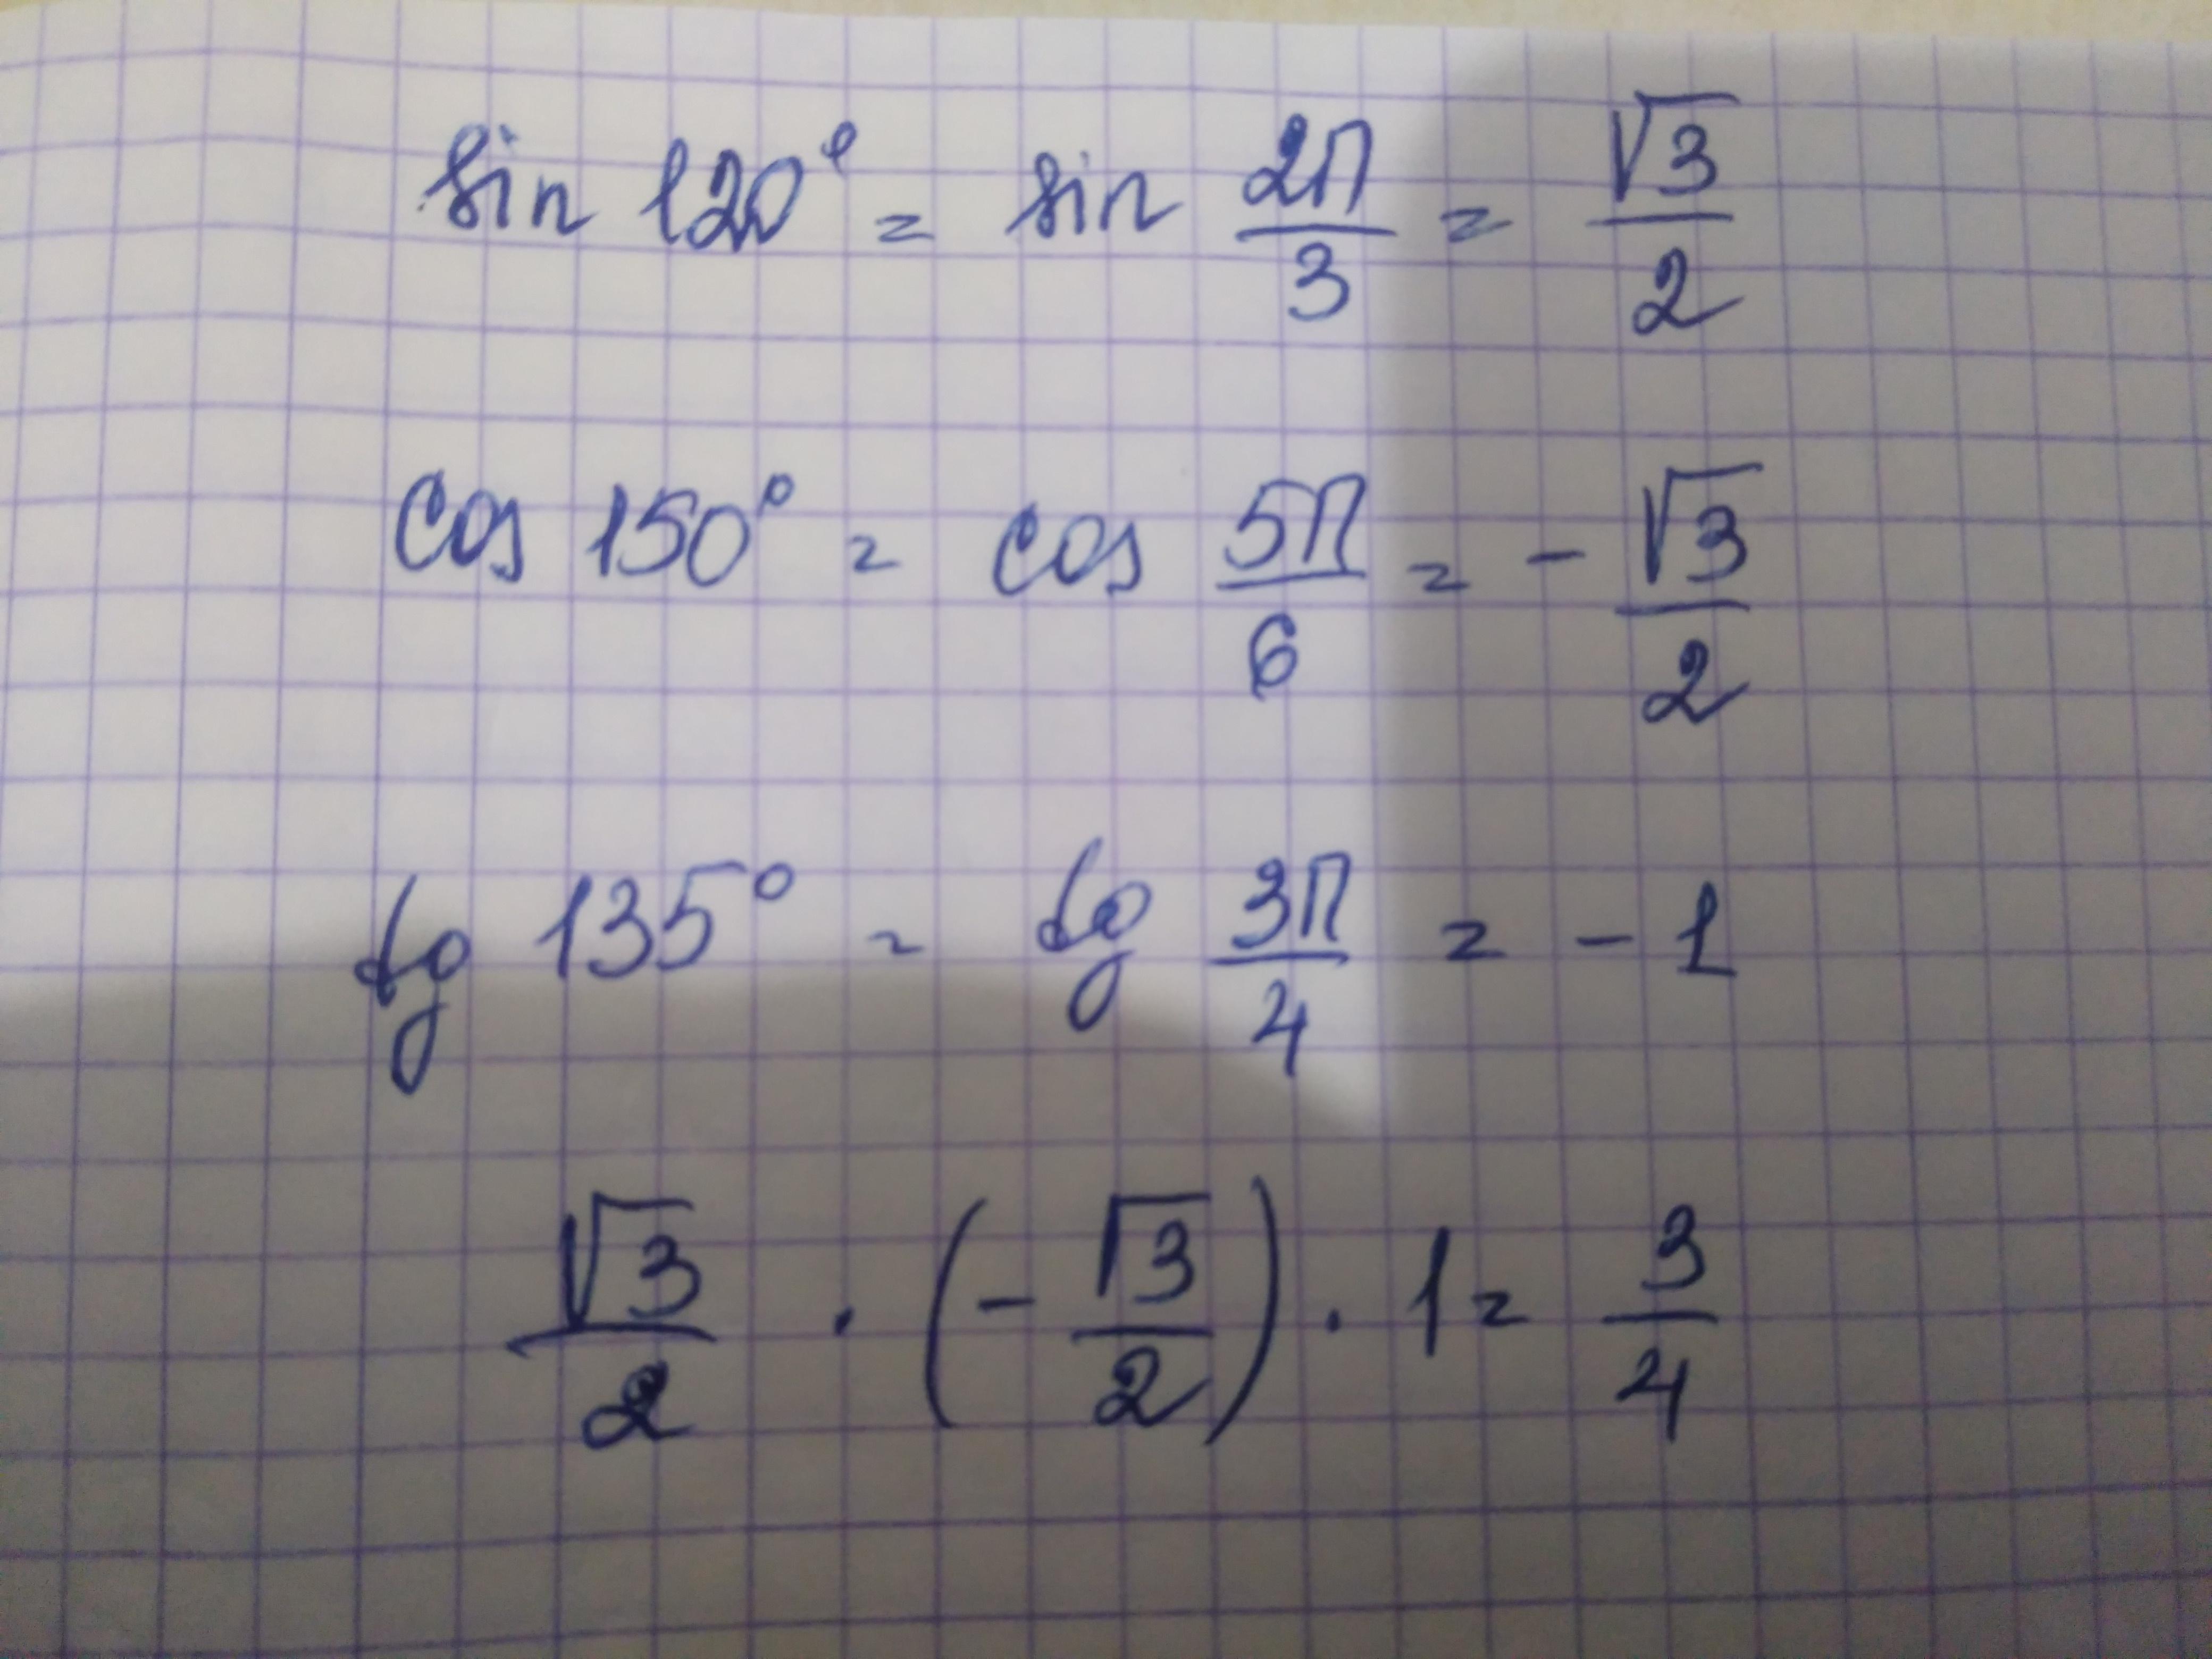 sin 120° = sin 2π/3 = √3/2
cos 150° = cos 5π/6 = - √3/2
tg 135° = tg 3π/4 = - 1
√3/2 · (- √3/2) · 1 = 3/4